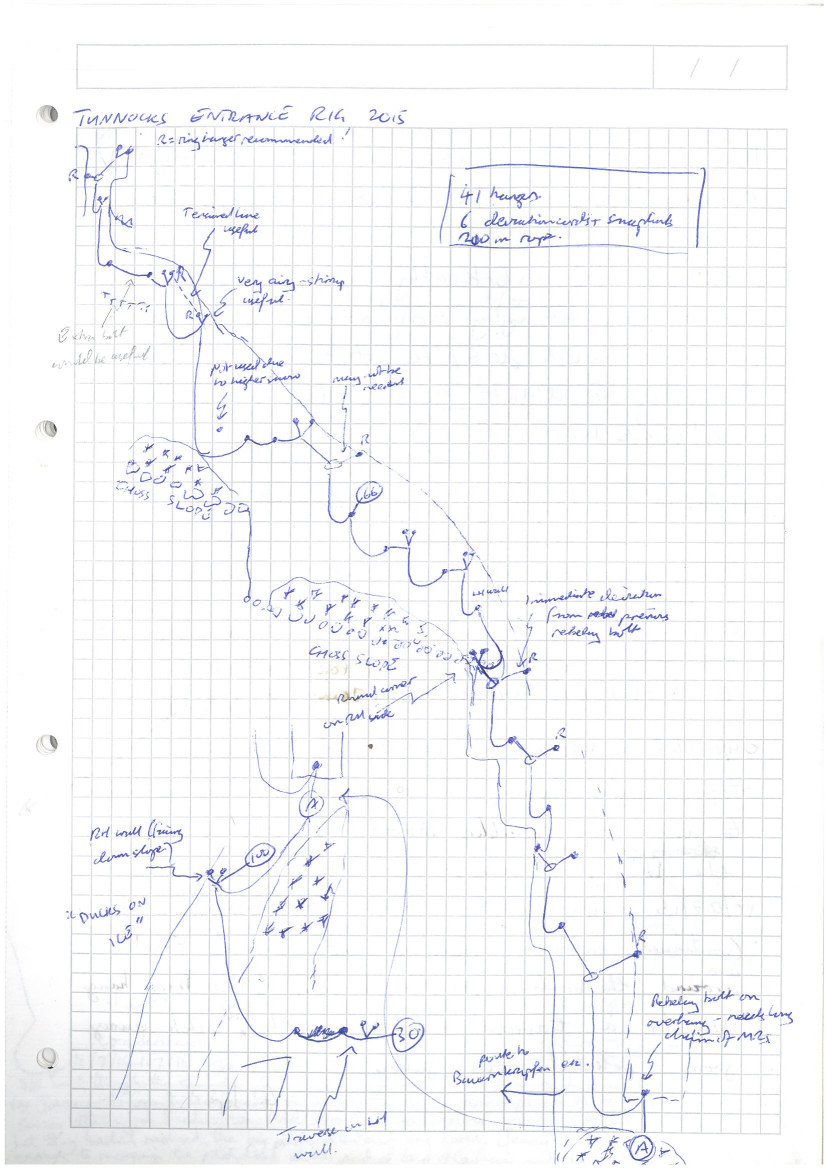 / /
TUNNOCKS ENTRANCE RIG 2015
R = ring hanger recommended!
R
41 hangers
6 deviation cords + snaplinks
200 m rope.
Tensioned line
useful
R
very airy - stirrup
useful.
R
Extra bolt
would be useful
Not used due
to higher snow
may not be
needed
R
66
CHOSS SLOPE
LH wall
Immediate deviation
from previous
rebelay bolt
R
CHOSS SLOPE
Round corner
on RH side
R
A
RH wall (facing
down slope)
100
"DUCKS ON
ICE"
R
Rebelay bolt on
overhang - needs long
chain of MRs
30
route to
Baumkrapfen etc.
Traverse on LH
wall.
A